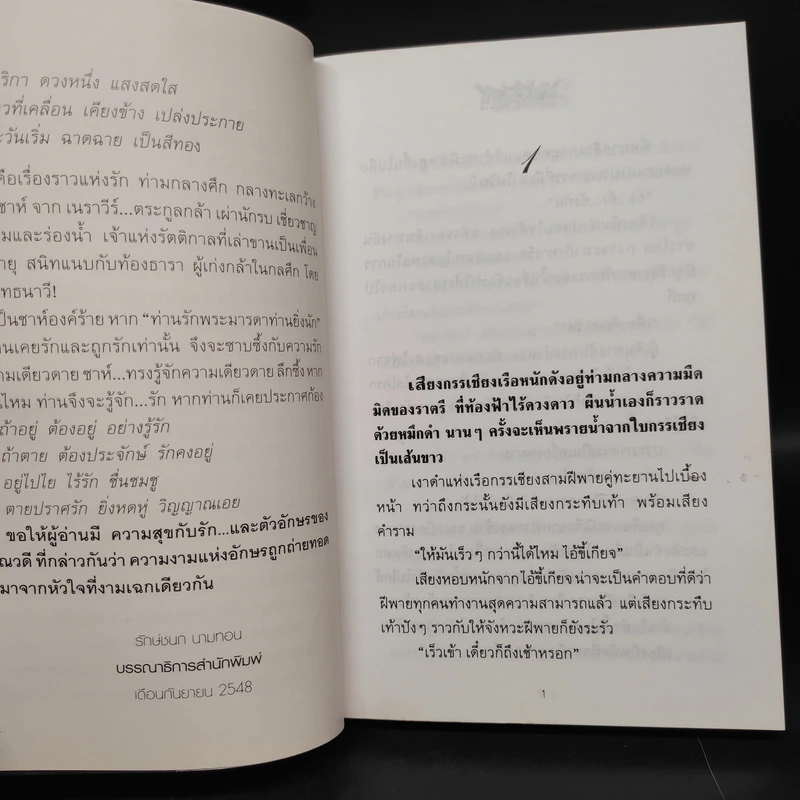 ริกา ดวงหนึ่ง แสงสดใส
วที่เคลื่อน เคียงข้าง เปล่งประกาย
ะวันเริ่ม ฉาดฉาย เป็นสีทอง
คือเรื่องราวแห่งรัก ท่ามกลางศึก กลางทะเลกว้าง
ชาห์ จาก เนราวีร์...ตระกูลกล้า เผ่านักรบ เชี่ยวชาญ
มและร่องน้ำ เจ้าแห่งรัตติกาลที่เล่าขานเป็นเพื่อน
ายุ สนิทแนบกับท้องธารา ผู้เก่งกล้าในกลศึก โดย
ทธนาวี!
เป็นชาห์องค์ร้าย หาก “ท่านรักพระมารดาท่านยิ่งนัก”
นเคยรักและถูกรักเท่านั้น จึงจะซาบซึ้งกับความรัก
ามเดียวดาย ชาห์...ทรงรู้จักความเดียวดาย ลึกซึ้ง หาก
นไหม ท่านจึงจะรู้จัก...รัก หากท่านก็เคยประกาศก้อง
ถ้าอยู่ ต้องอยู่ อย่างรู้รัก
ถ้าตาย ต้องประจักษ์ รักคงอยู่
อยู่ไปไย ไร้รัก ชื่นชมชู
ตายปราศรัก ยิ่งหดหู่ วิญญาณเอย
ขอให้ผู้อ่านมี ความสุขกับรัก...และตัวอักษรของ
ณวดี ที่กล่าวกันว่า ความงามแห่งอักษรถูกถ่ายทอด
มาจากหัวใจที่งามเฉกเดียวกัน
รักษ์ชนก นามทอน
บรรณาธิการสำนักพิมพ์
เดือนกันยายน 2548
1
เสียงกรรเชียงเรือหนักดังอยู่ท่ามกลางความมืด
มิดของราตรี ที่ท้องฟ้าไร้ดวงดาว ผืนน้ำเองก็ราวราด
ด้วยหมึกดำ นานๆ ครั้งจะเห็นพรายน้ำจากใบกรรเชียง
เป็นเส้นขาว
เงาดำแห่งเรือกรรเชียงสามฝีพายคู่ทะยานไปเบื้อง
หน้า ทว่าถึงกระนั้นยังมีเสียงกระทืบเท้า พร้อมเสียง
คำราม
“ให้มันเร็วๆ กว่านี้ได้ไหม ไอ้ขี้เกียจ”
เสียงหอบหนักจากไอ้ขี้เกียจ น่าจะเป็นคำตอบที่ดีว่า
ฝีพายทุกคนทำงานสุดความสามารถแล้ว แต่เสียงกระทืบ
เท้าปังๆ ราวกับให้จังหวะฝีพายก็ยังระรัว
“เร็วเข้า เดี๋ยวก็ถึงเช้าหรอก”
1